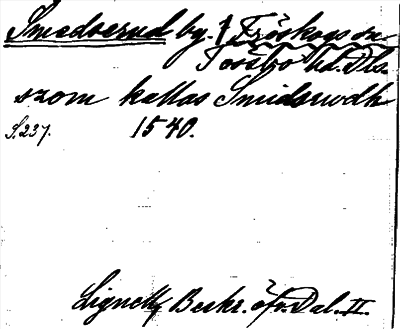 Smedserud by. i Fröskogs sn
Tössbo hd. Dls.
szom kallas Smidsrwdh
S. 237. 1540.
Lignell, Beskr. öfv. Dal. II.